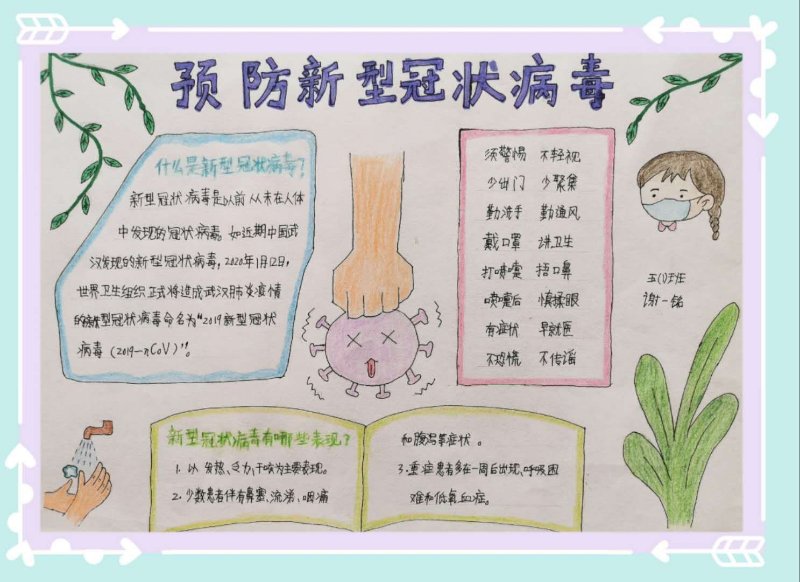 预防新型冠状病毒
什么是新型冠状病毒?
新型冠状病毒是以前从未在人体
中发现的冠状病毒。如近期中国武
汉发现的新型冠状病毒,2020年1月12日,
世界卫生组织正式将造成武汉肺炎疫情
的新型冠状病毒命名为“2019新型冠状
病毒(2019-nCoV)”。
须警惕 不轻视
少出门 少聚集
勤洗手 勤通风
戴口罩 讲卫生
打喷嚏 捂口鼻
喷嚏后 慎揉眼
有症状 早就医
不恐慌 不传谣
五(1)班
谢一铭
新型冠状病毒有哪些表现?
1. 以发热、乏力、干咳为主要表现。
2. 少数患者伴有鼻塞、流涕、咽痛
和腹泻等症状。
3. 重症患者多在一周后出现呼吸困
难和低氧血症。